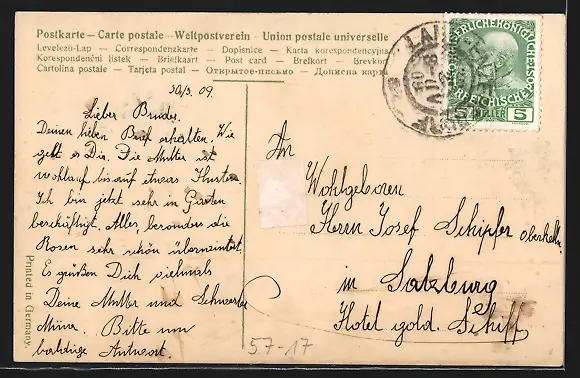 Postkarte – Carte postale – Weltpostverein – Union postale universelle
Levelező-Lap – Correspondenzkarte – Dopisnice – Karta korespondencyjna
Korespondenční lístek – Briefkaart – Post card – Brefkort – Brevkort
Cartolina postale – Tarjeta postal – Открытое письмо – Дописна карта
30/3. 09.
Lieber Bruder.
Deinen lieben Brief erhalten. Wie
geht es Dir. Die Mutter ist
wohlauf bis auf etwas Husten.
Ich bin jetzt sehr in Garten
beschäftigt. Alles, besonders die
Rosen sehr schön überwintert.
Es grüßen Dich vielmals
Deine Mutter und Schwester
Minna. Bitte um
baldige Antwort.
KAISERLICHEKÖNIGLICHE
ÖSTERREICHISCHE POST
5 HELLER 5
An
Wohlgeboren
Herrn Josef Schipfer oberkelln.
in Salzburg
Hotel gold. Schiff
57-17
Printed in Germany.